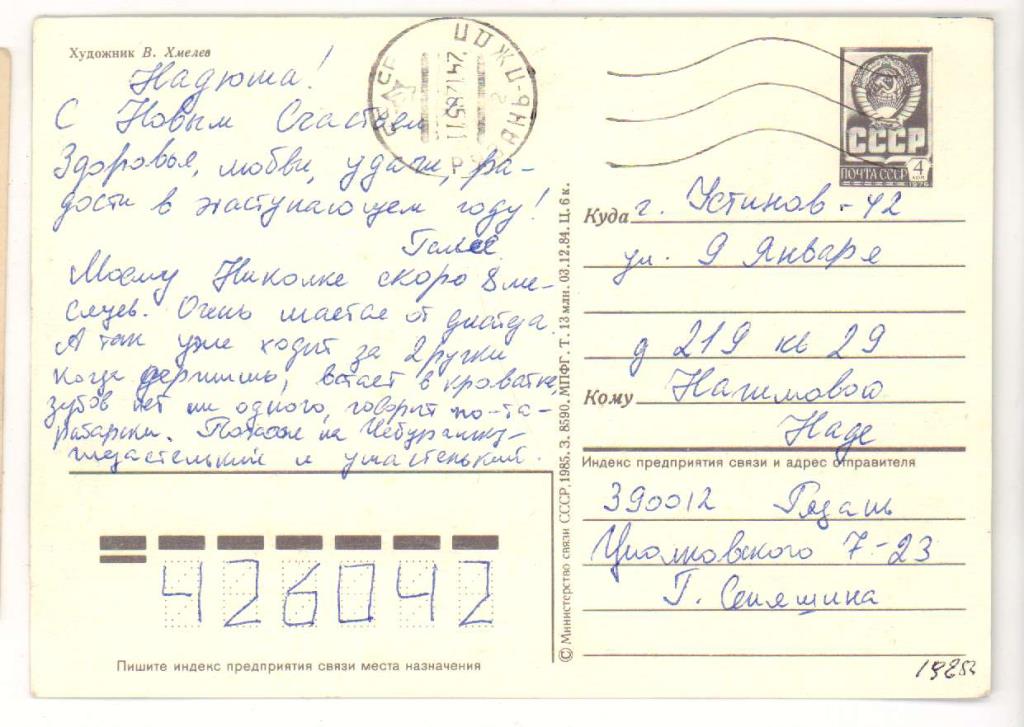 Художник В. Хмелев
Надюша!
С Новым Счастьем
Здоровья, любви, удачи, ра-
дости в наступающем году!
Галя.
Моему Николке скоро 8 ме-
сяцев. Очень мается от диатеза.
А так уже ходит за 2 ручки
когда держишь, встаёт в кроватке,
зубов нет ни одного, говорит по-та-
рабарски. Похож на Чебурашку-
глазастенький и ушастенький.
24 12 85 11
СССР
ПОЧТА СССР 4 коп
1976
Куда г. Устинов-42
ул. 9 Января
д 219 кв 29
Кому Нагимовой
Наде
Индекс предприятия связи и адрес отправителя
390012 Рязань
Циолковского 7-23
Г. Сеняшина
426042
Пишите индекс предприятия связи места назначения
© Министерство связи СССР, 1985. З. 8590. МПФГ. Т. 13 млн. 03.12.84. Ц. 6 к.